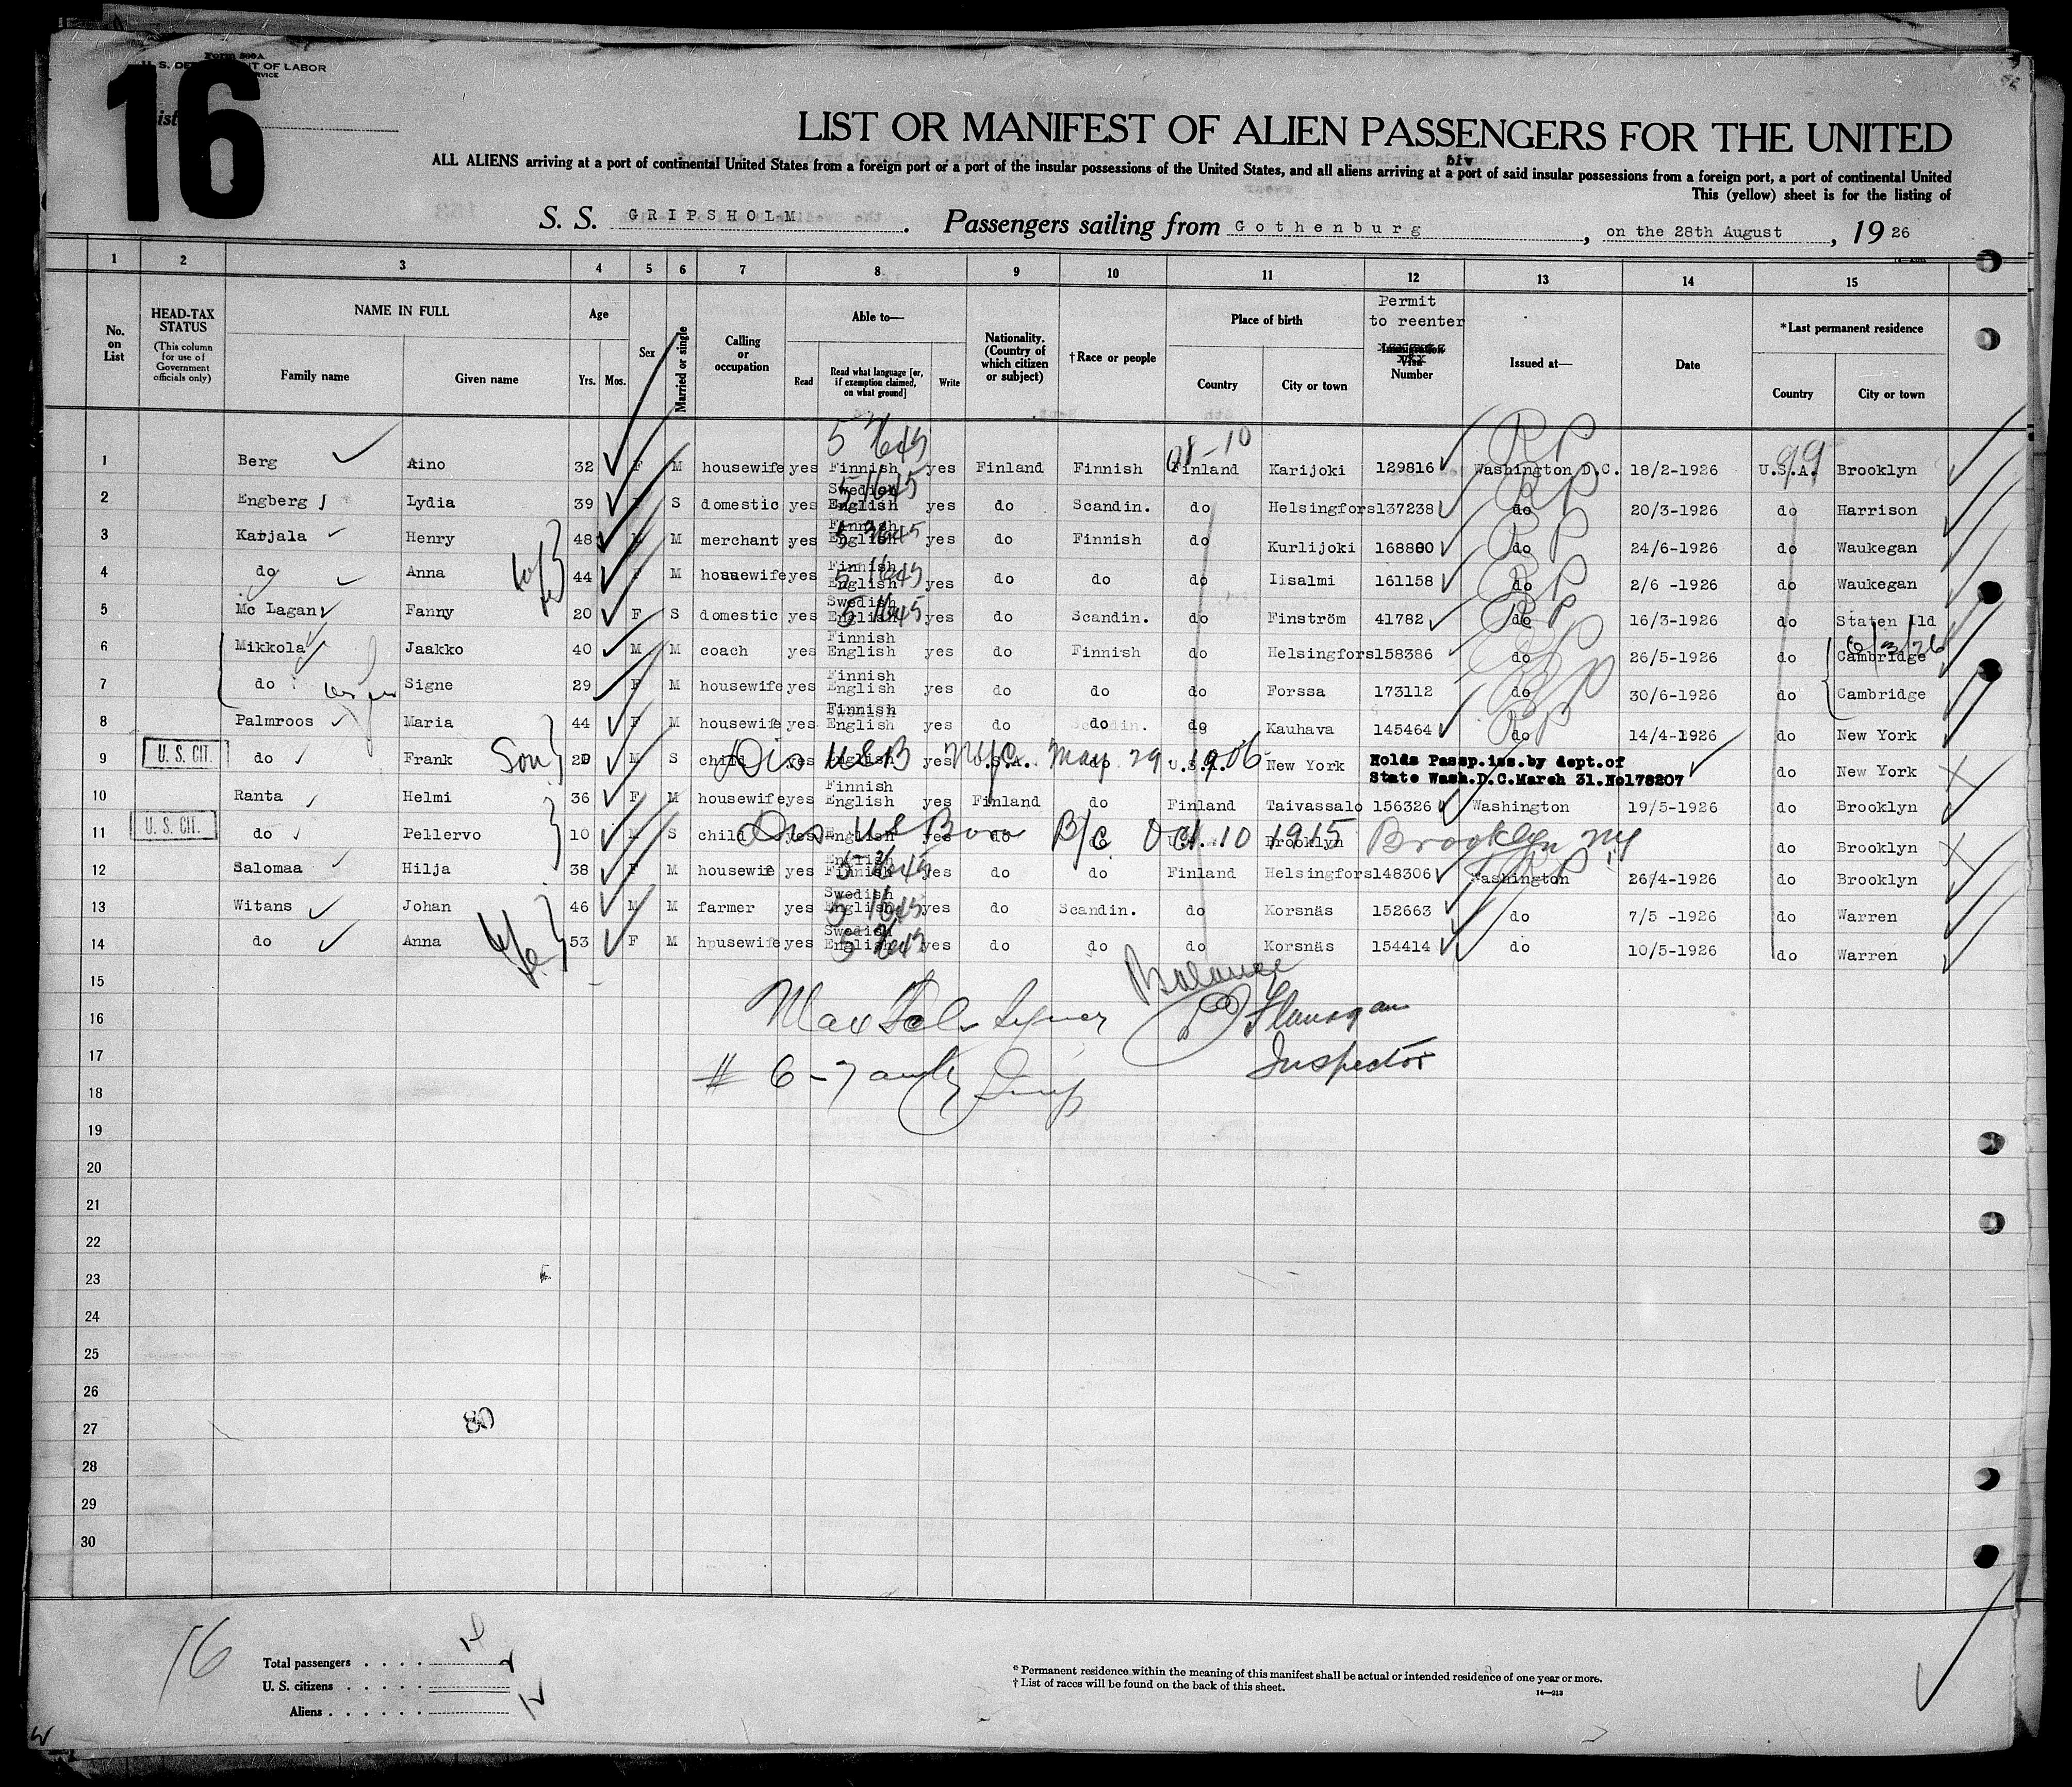 16
Form 500A
U. S. DEPARTMENT OF LABOR
LIST OR MANIFEST OF ALIEN PASSENGERS FOR THE UNITED
ALL ALIENS arriving at a port of continental United States from a foreign port or a port of the insular possessions of the United States, and all aliens arriving at a port of said insular possessions from a foreign port, a port of continental United
This (yellow) sheet is for the listing of
S. S. GRIPSHOLM. Passengers sailing from Gothenburg, on the 28th August, 1926
1 2 3 4 5 6 7 8 9 10 11 12 13 14 15
No. on List
HEAD-TAX STATUS
(This column for use of Government officials only)
NAME IN FULL
Family name Given name
Age
Yrs. Mos.
Sex
Married or single
Calling or occupation
Able to—
Read Read what language [or, if exemption claimed, on what ground] Write
Nationality. (Country of which citizen or subject)
†Race or people
Place of birth
Country City or town
Permit to reenter
Immigration Visa Number
Issued at—
Date
*Last permanent residence
Country City or town
1 Berg Aino 32 F M housewife yes Finnish yes Finland Finnish Finland Karijoki 129816 Washington D.C. 18/2-1926 U.S.A. Brooklyn
2 Engberg Lydia 39 F S domestic yes Swedish English yes do Scandin. do Helsingfors 137238 do 20/3-1926 do Harrison
3 Karjala Henry 48 M M merchant yes Finnish English yes do Finnish do Kurlijoki 168880 do 24/6-1926 do Waukegan
4 do Anna 44 F M housewife yes Finnish English yes do do do Iisalmi 161158 do 2/6 -1926 do Waukegan
5 Mc Lagan Fanny 20 F S domestic yes Swedish English yes do Scandin. do Finström 41782 do 16/3-1926 do Staten Ild
6 Mikkola Jaakko 40 M M coach yes Finnish English yes do Finnish do Helsingfors 158386 do 26/5-1926 do Cambridge
7 do Signe 29 F M housewife yes Finnish English yes do do do Forssa 173112 do 30/6-1926 do Cambridge
8 Palmroos Maria 44 F M housewife yes Finnish English yes do do do Kauhava 145464 do 14/4-1926 do New York
9 U. S. CIT. do Frank Son 20 M S child yes English yes U.S.A. U.S.A. New York Holds Passp.iss.by dept.of State Wash.D.C.March 31.No178207 do New York
USB NYC. May 29 1906
10 Ranta Helmi 36 F M housewife yes Finnish English yes Finland do Finland Taivassalo 156326 Washington 19/5-1926 do Brooklyn
11 U. S. CIT. do Pellervo 10 M S child yes English yes do do Brooklyn do Brooklyn
US Born B/C Oct. 10 1915 Brooklyn NY
12 Salomaa Hilja 38 F M housewife yes English Finnish yes do do Finland Helsingfors 148306 Washington 26/4-1926 do Brooklyn
13 Witans Johan 46 M M farmer yes Swedish English yes do Scandin. do Korsnäs 152663 do 7/5 -1926 do Warren
14 do Anna 53 F M housewife yes Swedish English yes do do do Korsnäs 154414 do 10/5-1926 do Warren
15
16 Flanagan
17 Inspector
# 6-7
18
19
20
21
22
23
24
25
26
27
80
28
29
30
16
Total passengers
U. S. citizens
Aliens
* Permanent residence within the meaning of this manifest shall be actual or intended residence of one year or more.
† List of races will be found on the back of this sheet.
14—213